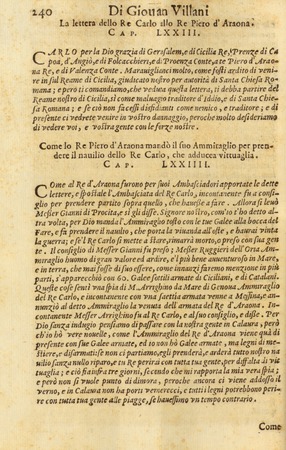 240 Di Giouan Villani
La lettera dello Re Carlo allo Re Piero d'Araona.
CAP. LXXIII.
CARLO per la Dio grazia di Gerusalem, e di Cicilia Re, Prenze di Ca
poa, d'Angiò, e di Folcacchieri, e di Proenza Conte, a te Piero d'Arao-
na Re, e di Valenza Conte. Marauigliamci molto, come fosti ardito di veni-
re in sul Reame di Cicilia, giudicato nostro per autorità di Santa Chiesa Ro-
mana; e però ti comandiamo, che veduta questa lettera, ti debba partire del
Reame nostro di Cicilia, sì come maluagio traditore d'Iddio, e di Santa Chie-
sa Romana; e se ciò non facessi disfidianti come nemico, e traditore; e di
presente ci vedrete venire in vostro dannaggio, peroche molto desideriamo
di vedere voi, e vostra gente con le forze nostre.
Come lo Re Piero d'Araona mandò il suo Ammiraglio per pren-
dere il nauilio dello Re Carlo, che adducea vittuaglia.
CAP. LXXIIII.
COME al Re d'Araona furono per suoi Ambasciadori apportate le dette
lettere, e spostale l'Ambasciata del Re Carlo, incontanente fu a consi-
glio per prendere partito sopra quello, che hauesse a fare. Allora si leuò
Messer Gianni di Procita, e sì gli disse. Signore nostro, com'io t'ho detto al-
tra volta, per Dio manda l'Ammiraglio tosto con le tue Galee alla bocca del
Fare, e fa prendere il nauilio, che porta la viuanda all'oste, e haurai vinta
la guerra; e se'l Re Carlo si mette a stare, rimarrà morto, o preso con sua gen
te. Il consiglio di Messer Gianni fu preso; e Messer Ruggieri dell'Oria Am-
miraglio huomo di gran valore ed ardire, e'l più bene auenturoso in Mare,
e in terra, che mai fosse di suo essere, come innanzi faremo menzione in più
parti, s'apparecchiò con 60. Galee sottili armate di Ciciliani, e di Catalani.
Queste cose senti vna spia di M. Arrighino da Mare di Genoua Ammiraglio
del Re Carlo, e incontanente con vna saettia armata venne a Messina, an-
nunziò al detto Ammiraglio la venuta dell'armata del Re d'Araona. In-
contanente Messer Arrighino fu al Re Carlo, e al suo consiglio, e disse. Per
Dio sanza indugio pensiamo di passare con la nostra gente in Calaura, però
ch'io hò vere nouelle, come l'Ammiraglio del Re d'Araona viene quà di
presente con sue Galee armate, ed io non hò Galee armate, ma legni di me-
stiere, e disarmati; se non ci partiamo, egli prenderà, e arderà tutto nostro na
uilio sanza nullo riparo, e tu Re perirai con tutta tua gente, per diffalta di vit
tuaglia; e ciò fia infra tre giorni, secondo che mi rapporta la mia vera spia;
e però non si vuole punto di dimora, peroche ancora ci viene addosso il
verno, e in Calaura non ha porti vernerecci, e tutti i legni potrebbono peri-
re con tutta tua gente alle piagge, se hauessimo vn tempo contrario.
Come